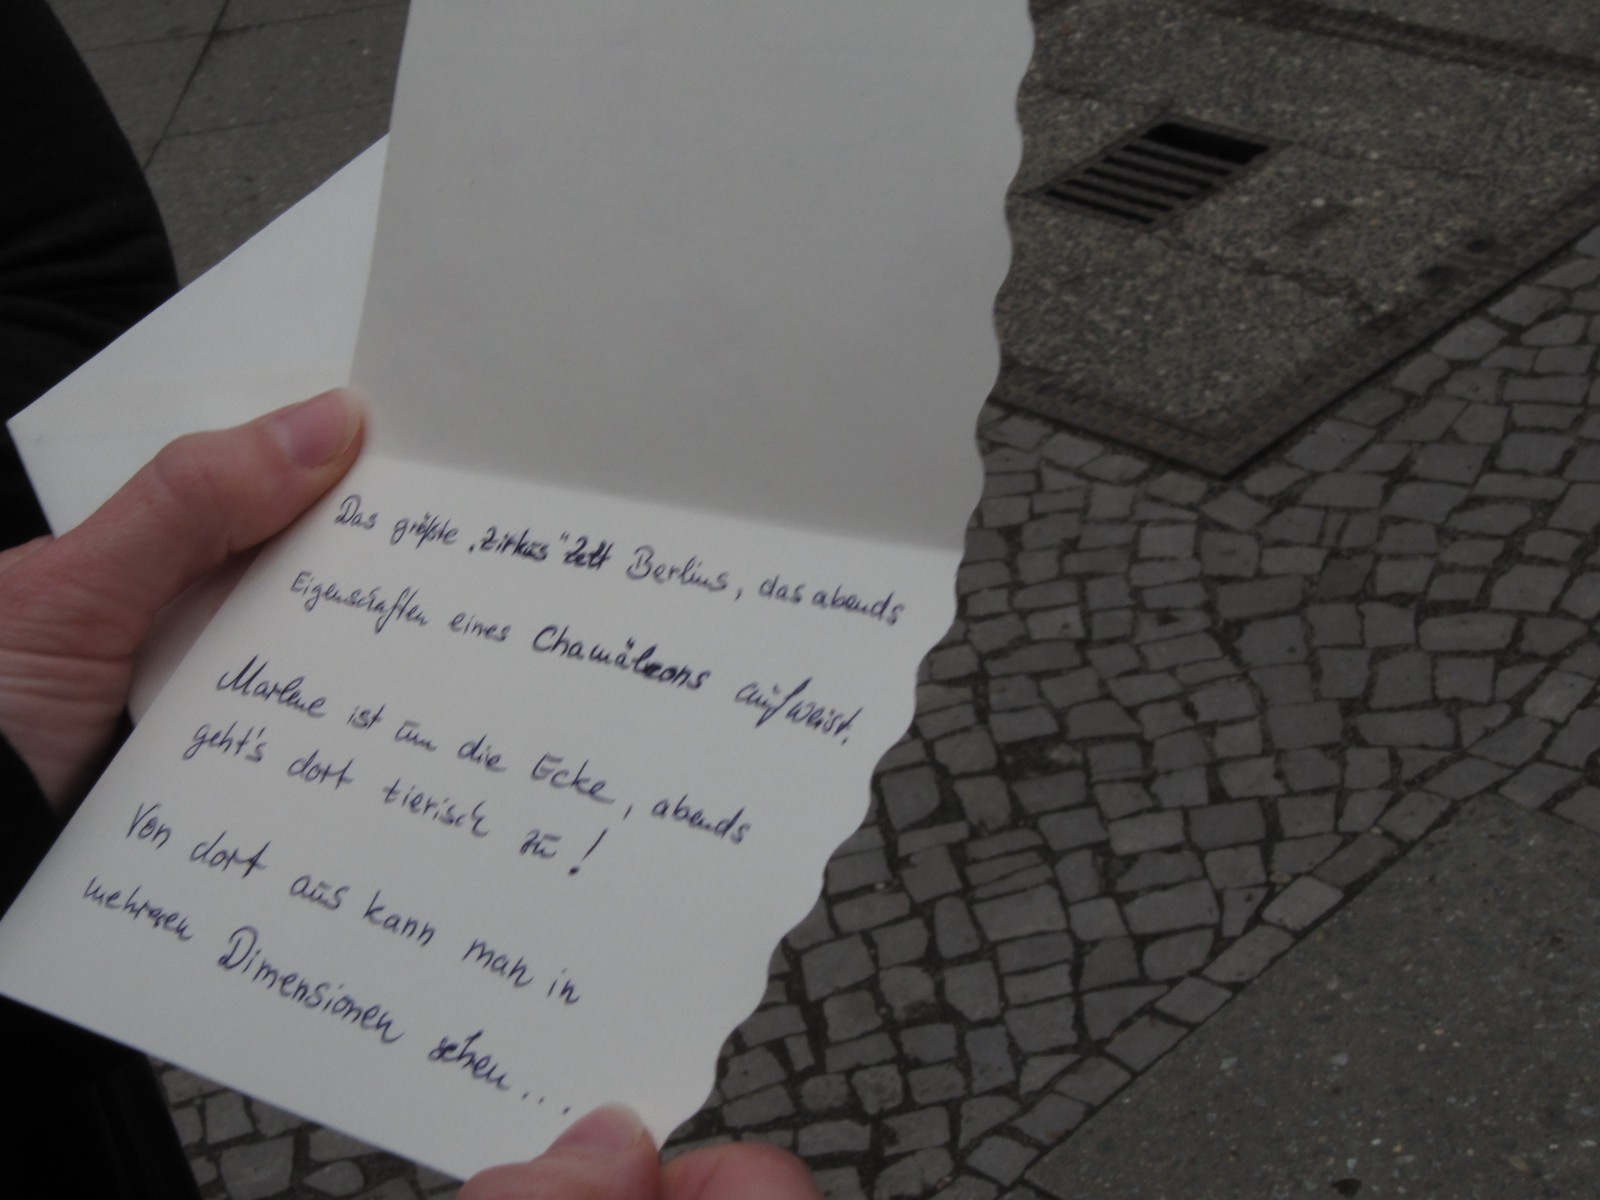 Das größte „Zirkus“ Zelt Berlins, das abends
Eigenschaften eines Chamäleons aufweist.
Marlene ist um die Ecke, abends
geht's dort tierisch zu!
Von dort aus kann man in
mehreren Dimensionen sehen...